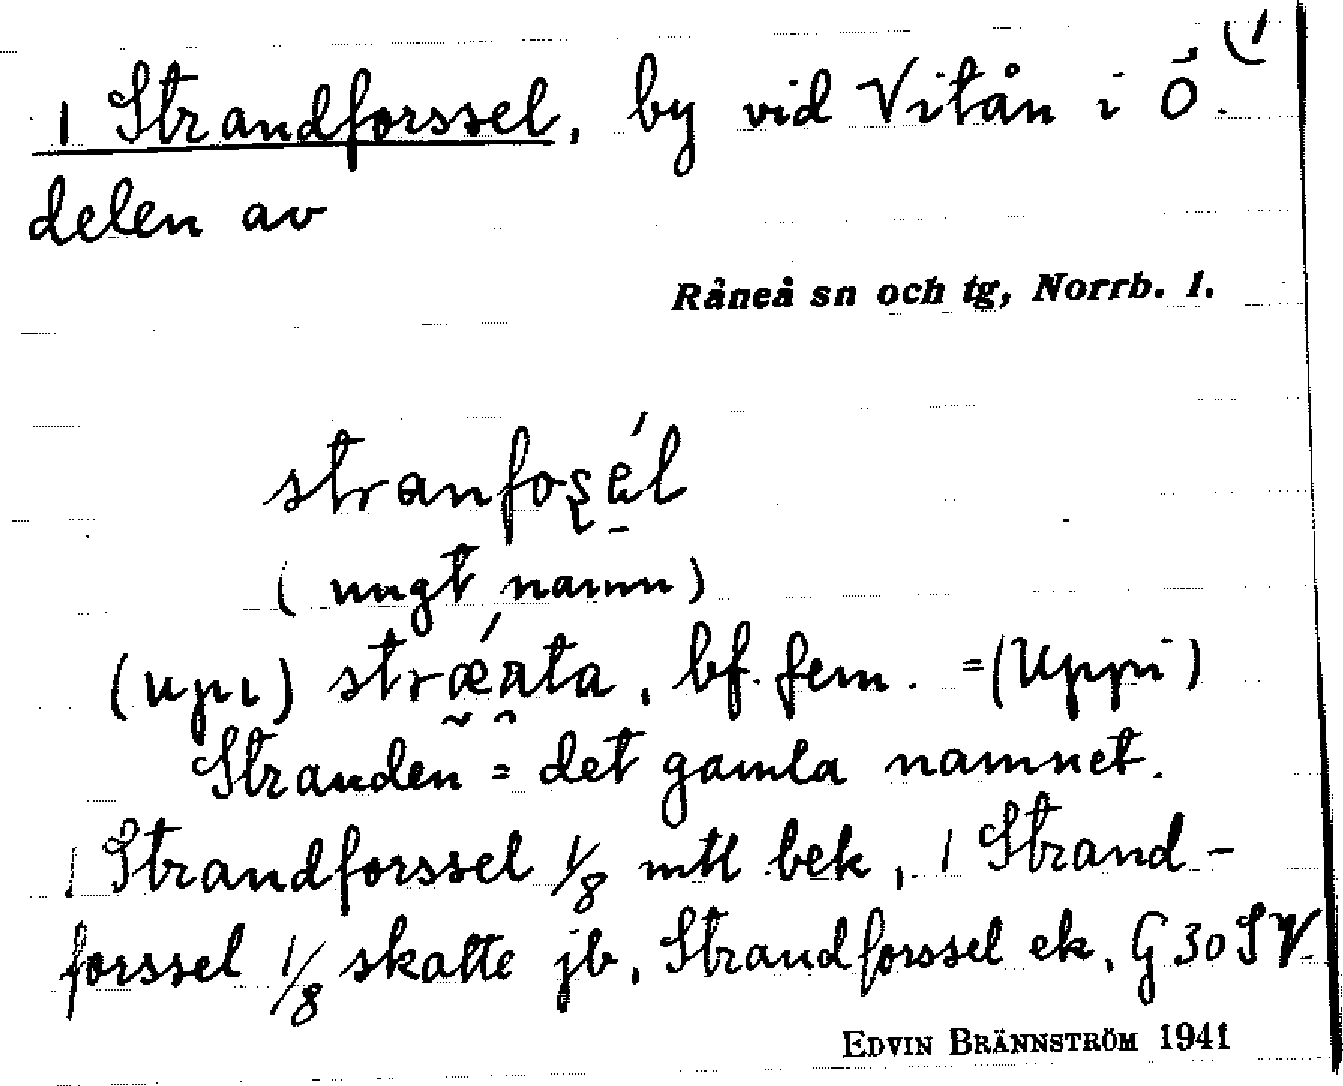 (1
1 Strandforssel, by vid Vitån i Ö.
delen av
Råneå sn och tg, Norrb. l.
stranfoʂél
(ungt namn)
(upı) strǽṇta, bf. fem. =(Uppi)
Stranden = det gamla namnet.
1 Strandforssel 1/8 mtl bek, 1 Strand-
forssel 1/8 skatte jb, Strandforssel ek, G 30 SV.
EDVIN BRÄNNSTRÖM 1941